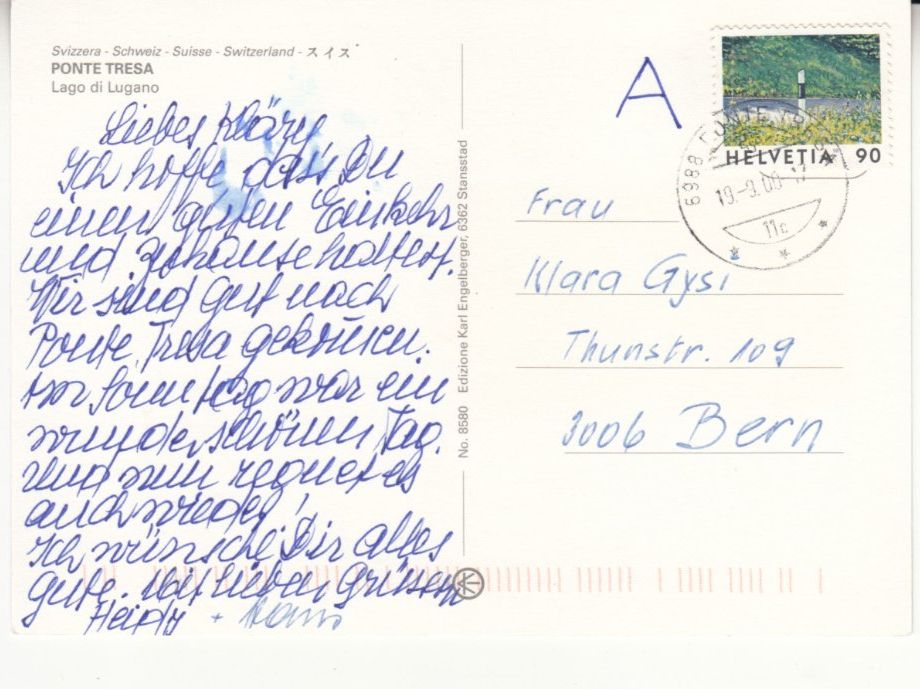 Svizzera - Schweiz - Suisse - Switzerland - スイス
PONTE TRESA
Lago di Lugano
Liebes Kläry
Ich hoffe dass Du
einen guten Einkehr
und zuhause hattest.
Wir sind gut nach
Ponte Tresa gekommen.
Am Sonntag war ein
wunderschönen Tag.
Und nun regnet es
auch wieder!
Ich wünsche Dir alles
gute. mit lieben Grüssen
Heidy + Hans
No. 8580 Edizione Karl Engelberger, 6362 Stansstad
A
HELVETIA 90
6988 PONTE
11c
Frau
Klara Gysi
Thunstr. 109
3006 Bern